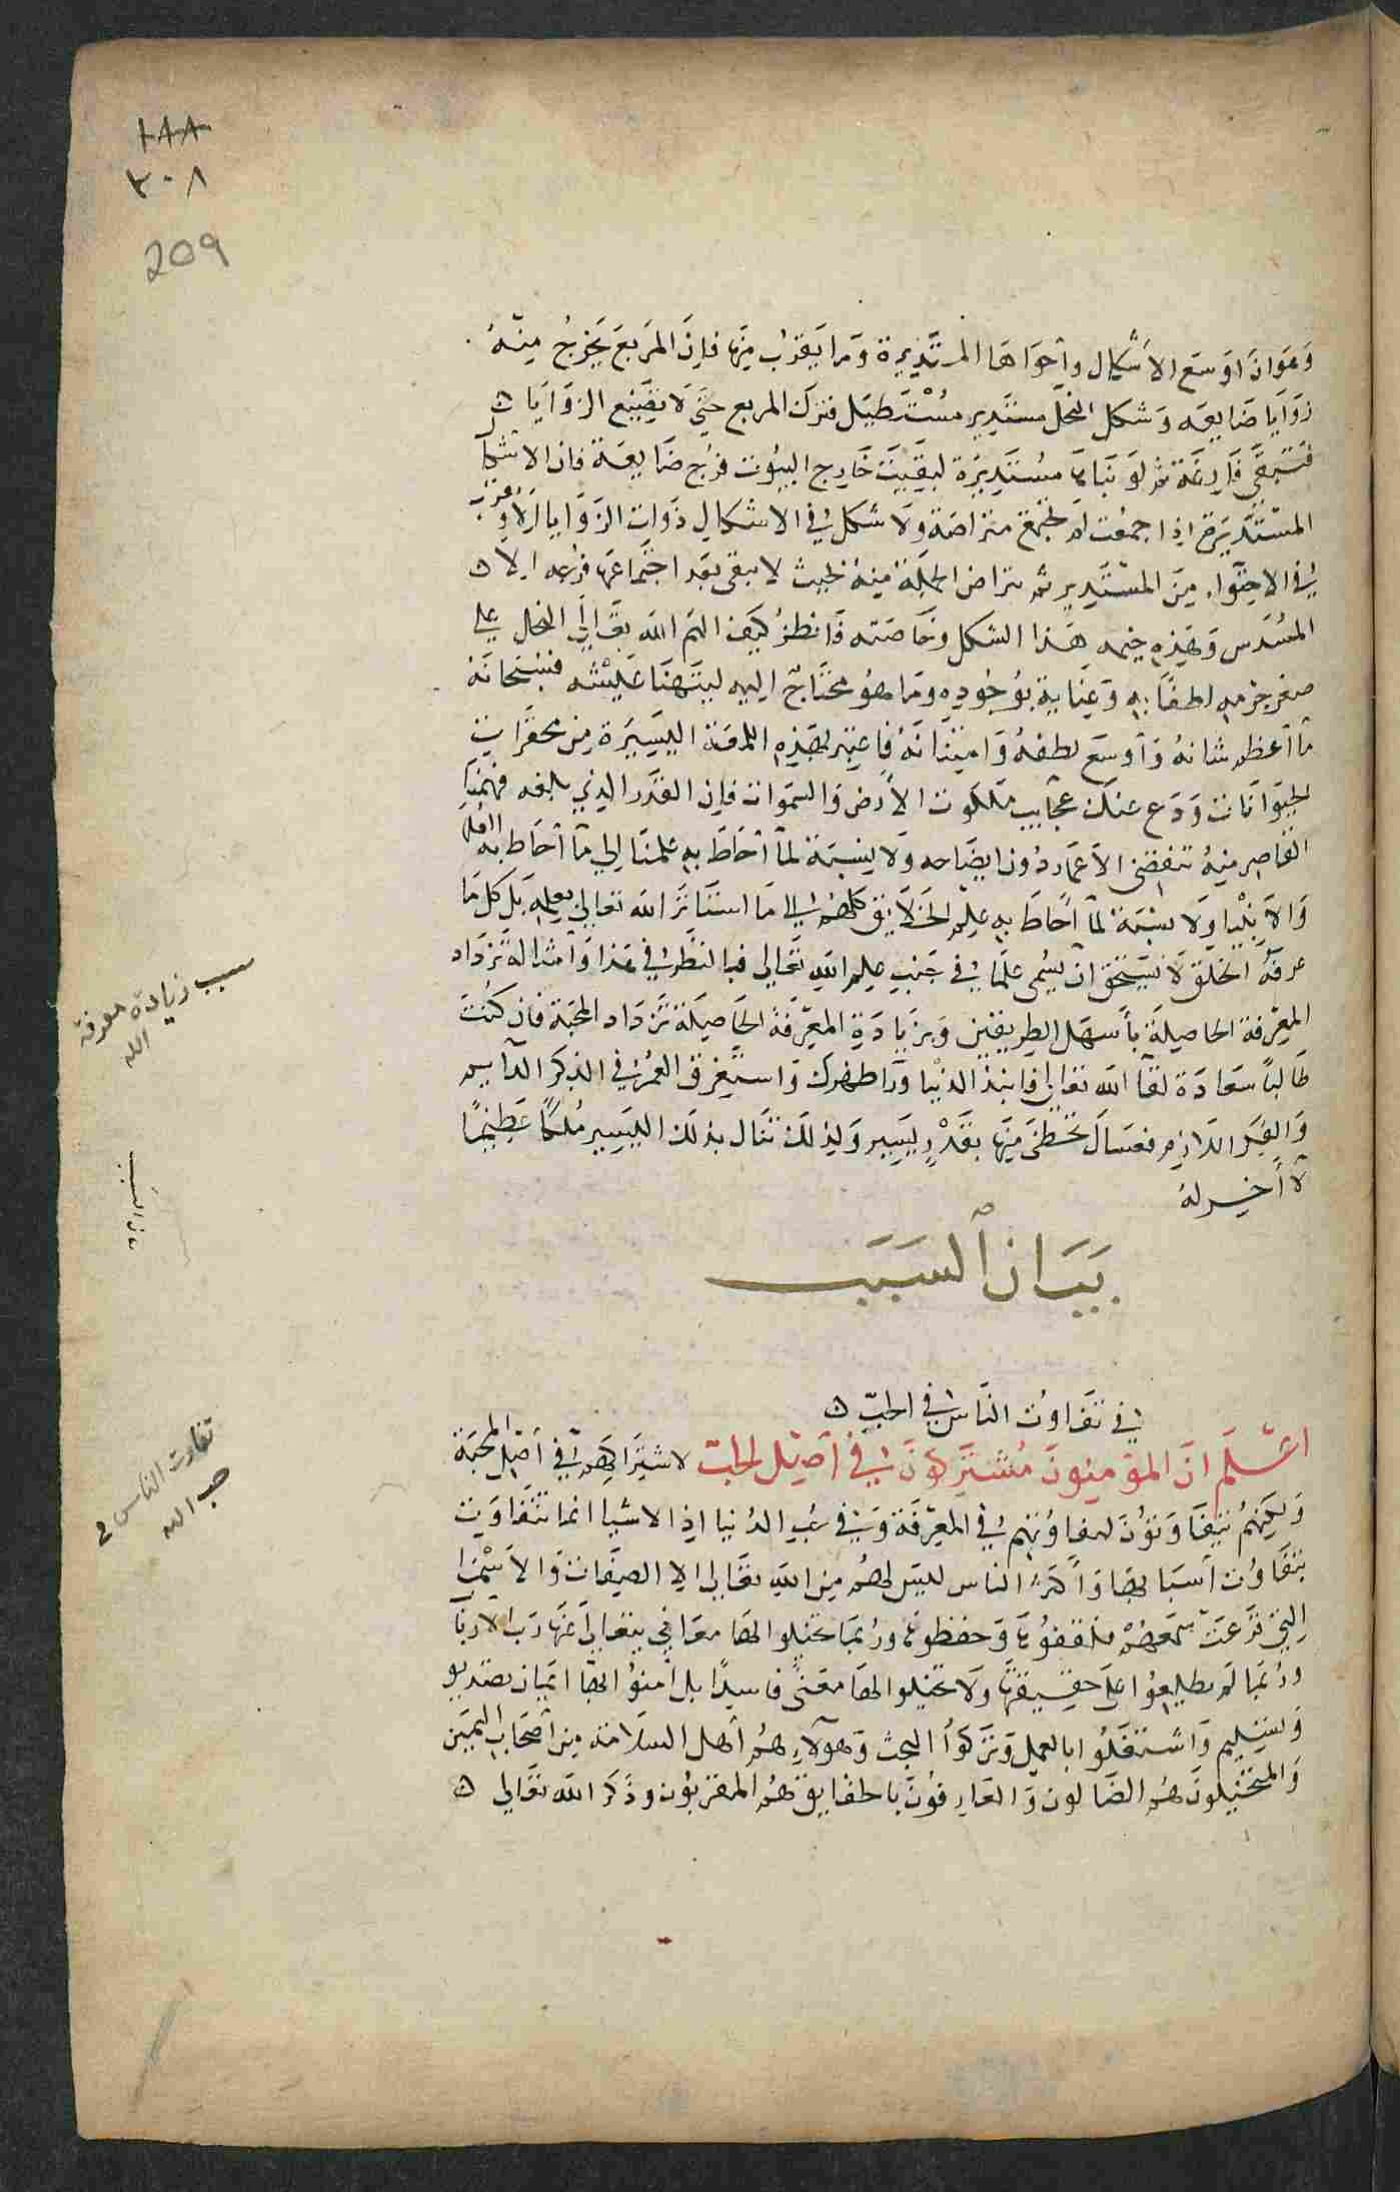 ١٨٨
٣٠٨
209
وهوان اوسع الاشكال وأحواها المستديرة وما يقرب منها فان المربع يخرج منه
زوايا ضايعه وشكل النحل مستدير مستطيل فترك المربع حتى لا يضيع الزوايا ه
فتبقى فارغة ثم لو بناها مستديرة لبقيت خارج البيوت فرج ضايعة فان الاشكال
المستديرة اذا جمعت لم تجتمع متراصة ولا شكل في الاشكال ذوات الزوايا يقرب
في الاحتواء من المستدير ثم تراص الجملة منه بحيث لا يبقى بعد اجتماعها فرجه الا ه
المسدس وهذه خاصية هذا الشكل فانظر كيف الهم الله تعالى النحل على
صغر جرمه لطفا به وعناية بوجوده وما هو محتاج اليه ليتهنا عيشه فسبحانه
ما أعظم شانه وأوسع لطفه وامتنانه فاعتبر بهذه اللمعة اليسيرة من محقرات
الحيوانات ودع عنك عجايب ملكوت الأرض والسموات فان القدر الذي بلغه فهمنا
القاصر منه تنقضي الأعمار دون ايضاحه ولا نسبة لما أحاط به علمنا الي ما أحاط به العلماء
والانبيا ولا نسبة لما أحاط به علم الخلايق كلهم الى ما استاثر الله تعالى بعلمه بل كل ما
عرفه الخلق لا يستحق ان يسمى علما في جنب علم الله تعالى فبالنظر في هذا وأمثاله تزداد
المعرفة الحاصلة بأسهل الطريقين وبزيادة المعرفة الحاصلة تزداد المحبة فان كنت
طالبا سعادة لقآ الله تعالى فانبذ الدنيا ورا ظهرك واستغرق العمر في الذكر الدآيم
والفكر اللازم فعساك تحظى منها بقدر يسير ولذلك تنال بذلك اليسير ملكا عظيما
لا أخر له
بيان السبب
في تفاوت الناس في الحب ه
اعلم ان المؤمنون مشتركون في أصل الحب لاشتراكهم في أصل المحبة
ولكنهم يتفاوتون لتفاوتهم في المعرفة وفي حب الدنيا اذ الاشيا انما تتفاوت
بتفاوت أسبابها وأكثر الناس ليس لهم من الله تعالى الا الصفات والاسما
التي قرعت سمعهم فتلقفوها وحفظوها وربما تخيلوا لها معاني يتعالى عنها رب الارباب
وربما لم يطلعوا على حقيقتها ولا تخيلوا لها معنى فاسدا بل امنوا بها ايمان تصديق
وتسليم واشتغلوا بالعمل وتركوا البحث وهولآء هم أهل السلامة من أصحاب اليمين
والمتخيلون هم الضالون والعارفون بالحقايق هم المقربون وذكر الله تعالى ه
سبب زيادة معرفة
الله
بيان السبب
تفاوت الناس في
حب الله